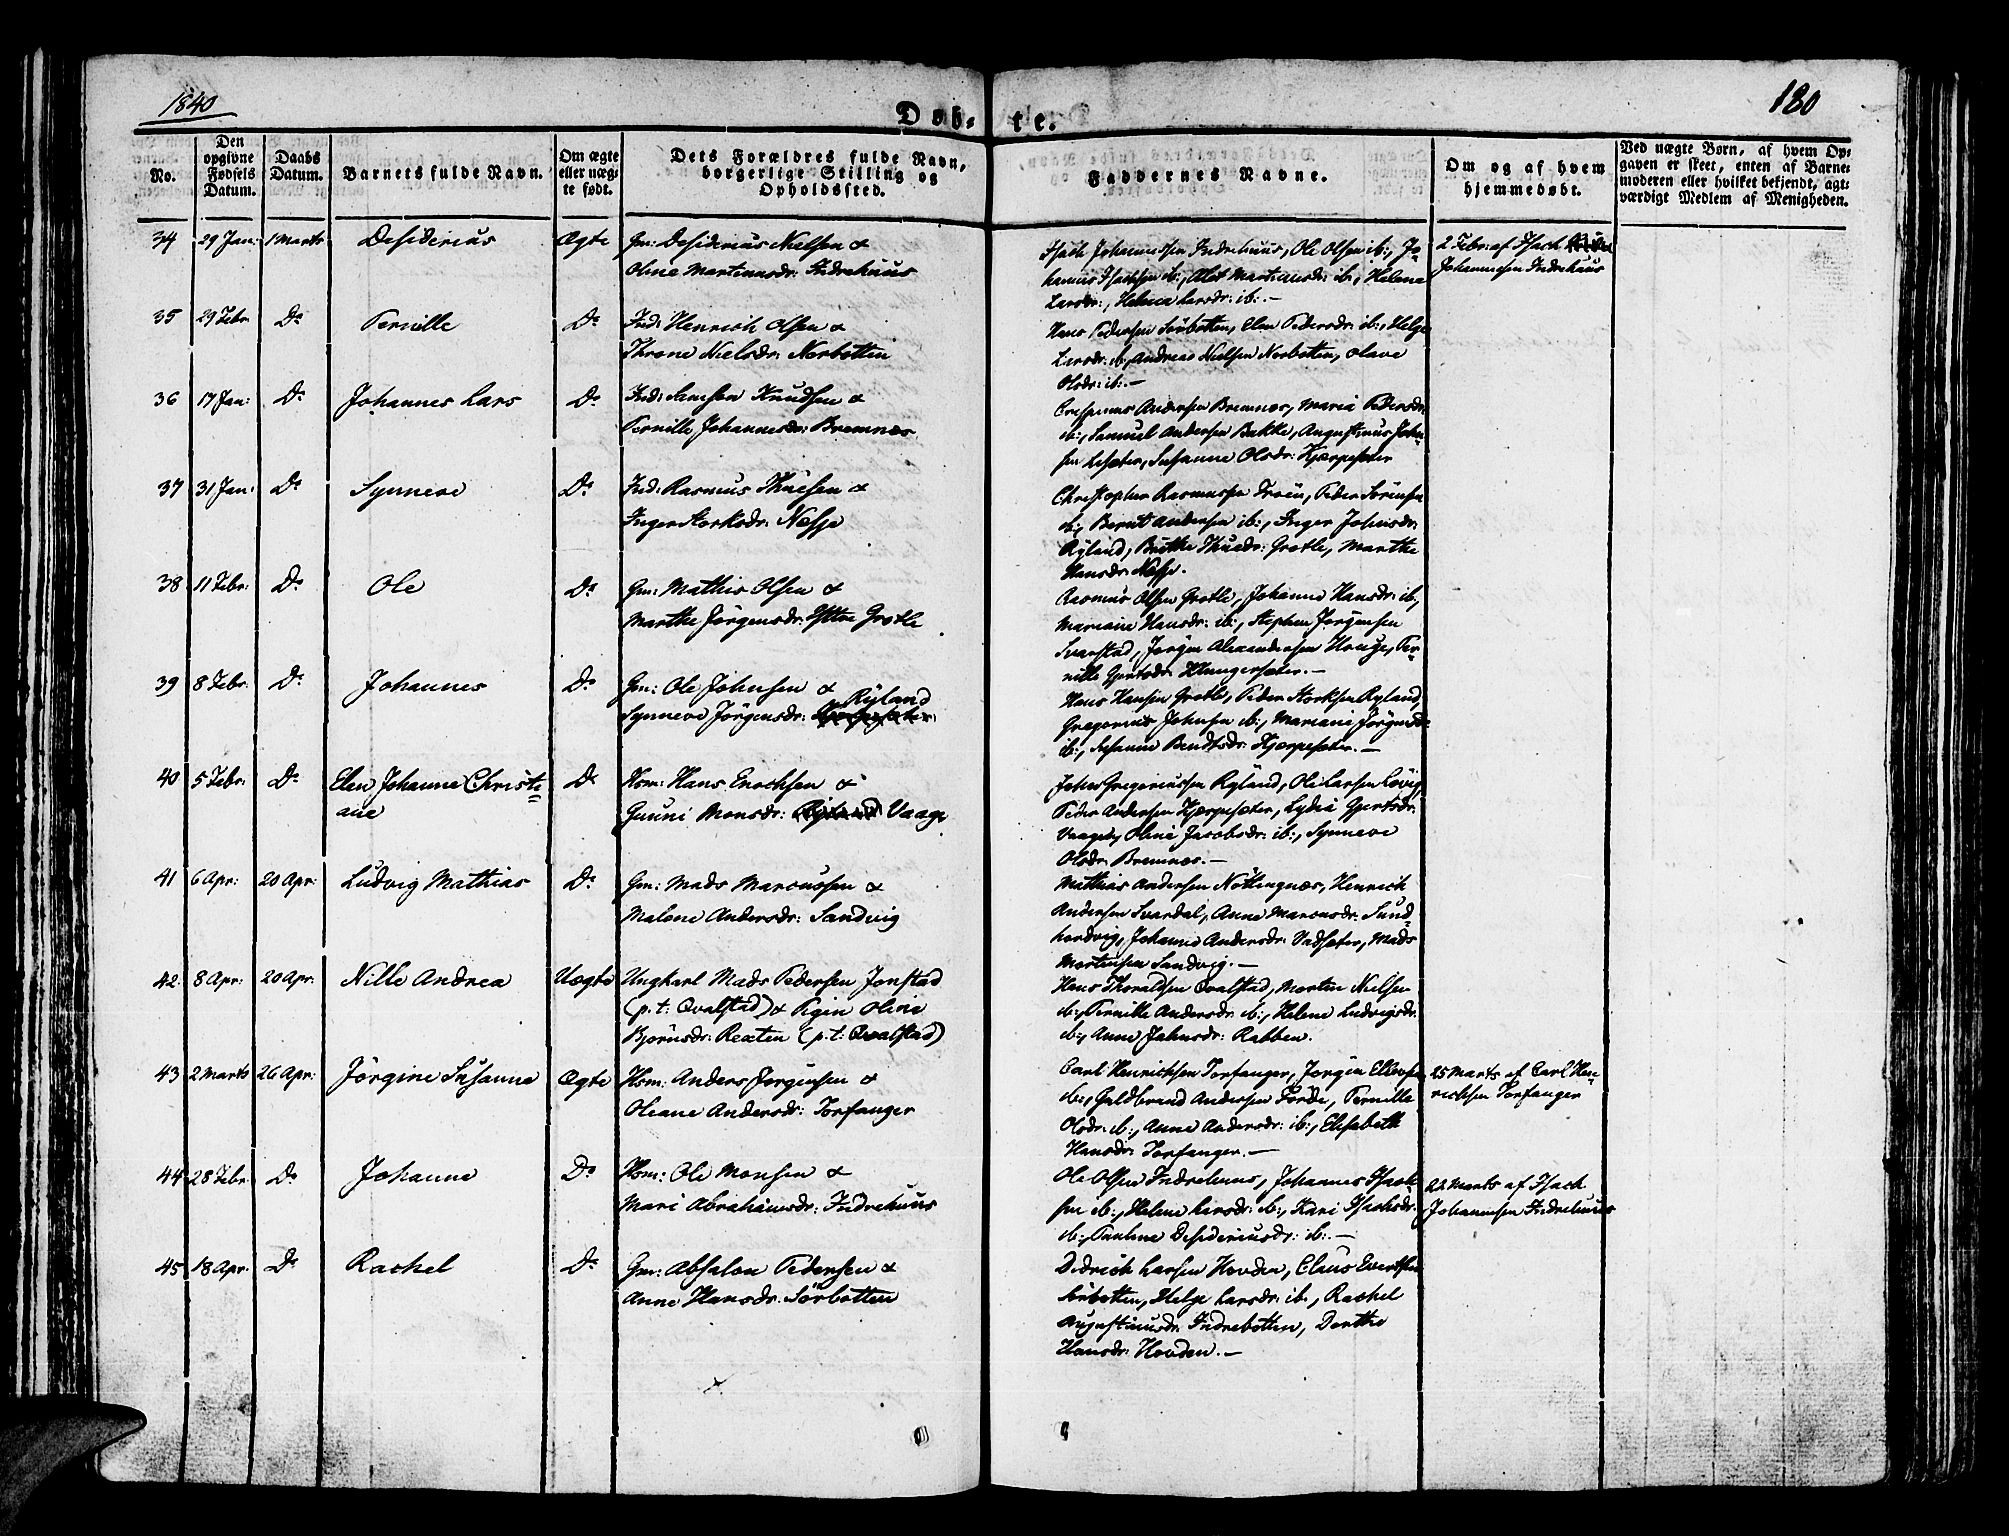 1840
180
Døb-te.
No.
Den opgivne Fødsels Datum.
Daabs Datum.
Barnets fulde Navn.
Om ægte eller uægte født.
Dets Forældres fulde Navn, borgerlige Stilling og Opholdssted.
Faddernes Navne.
Om og af hvem hjemmedøbt.
Ved uægte Børn, af hvem Opgaven er skeet, enten af Barnemoderen eller hvilket bekjendt, agtværdigt Medlem af Menigheden.
34 29 Jan: 1 Marts Desiderius Ægte Gm: Desiderius Nielsen &
Oline Martinusdr: Indrehuus
Isach Johannessen Indrehuus, Ole Olsen ib:, Jo-
hannes Isachsen ib:, Alet Martinusdr: ib:, Helene
Larsdr:, Helene Larsdr: ib:.—
2 Febr: af Isach
Johannesen Indrehuus
35 29 Febr. Do Pernille Do Ind: Henrich Olsen &
Throne Nielsdr: Norbotten
Hans Pedersen Sørbotten, Elen Pedersdr: ib:, Helge
Larsdr: ib, Andreas Nielsen Norbotten, Olave
Olsdr: ib:.—
36 17 Jan: Do Johannes Lars Do Ind: Samson Knudsen &
Pernille Johannesdr: Bremnæs
Crispinus Andersen Bremnæs, Maria Pedersdr:
ib:, Samuel Andersen Bakke, Augustinus John-
sen Lisæter, Susanne Olsdr: Kjerpesæter
37 31 Jan: Do Synneve Do Ind: Rasmus Thuesen &
Inger Storksdr: Nesse
Christopher Rasmussen Troen, Peder Sørensen
ib:, Bernt Andersen ib:, Inger Johnsdr:
Ryland, Britte Thuesdr: Grotle, Marthe
Hansdr: Nesse.
38 11 Febr: Do Ole Do Gm: Mathis Olsen &
Marthe Jørgensdr: Yttre Grotle
Rasmus Olsen Grotle, Johanne Hansdr: ib,
Mariane Hansdr: ib:, Stephen Jørgensen
Svarstad, Jørgen Alexandersen Houge, Per-
nille Gjertsdr: Klungersæter.—
39 8 Febr: Do Johannes Do Gm: Ole Johnsen &
Synneve Jørgensdr: Ryland
Hans Hansen Grotle, Peder Storksen Ryland,
Gregorius Johnsen ib:, Mariani Jørgensdr
ib:, Susanne Bendtsdr: Kjerpesæter.—
40 5 Febr: Do Elen Johanne Christi-
ane
Do Hsm: Hans Enochsen &
Gunni Monsdr: Vaage
John Gregoriussen Ryland, Ole Larsen Løvig,
Peder Andersen Kjerpesæter, Lydia Gjertsdr:
Vaage, Oline Jacobsdr: ib:, Synneve
Olsdr: Bremnæs.—
41 6 Apr: 20 Apr: Ludvig Mathias Do Gm: Mads Marcussen &
Malene Andersdr: Sandvig
Mathias Andersen Nøttingnæs, Henrich
Andersen Svardal, Anne Marcusdr: Sund-
hordvig, Johanne Andersdr: Vadsæter, Mads
Mortensen Sandvig.—
42 8 Apr: 20 Apr: Nille Andrea Uægte Ungkarl Mads Pedersen Jonstad
(p.t: Qvalstad) & Pigen Olive
Bjørnsdr: Rexten (p.t: Qvalstad)
Hans Thoraldsen Qvalstad, Morten Nielsen
ib:, Pernille Andersdr: ib:, Helene Ludvigsdr:
ib:, Anne Jahnsdr: Rabben.
43 2 Marts 26 Apr: Jørgine Susanne Ægte Hsm: Anders Jørgensen &
Oleane Andersdr: Torfanger
Carl Henrichsen Torfanger, Jørgen Ellevsen
ib:, Guldbrand Andersen Førde, Pernille
Olsdr: ib:, Anne Andersdr: ib:, Elisabeth
Hansdr: Torfanger.—
25 Marts af Carl Hen-
richsen Torfanger
44 28 Febr: Do Johanne Do Hsm: Ole Monsen &
Mari Abrahamsdr: Indrehuus
Ole Olsen Indrehuus, Johannes Isach-
sen ib:, Helene Larsdr: ib:, Kari Isachsdr:
ib:, Pauline Desideriusdr: ib:.—
22 Marts af Isach
Johannesen Indrehuus
45 18 Apr: Do Rachel Do Gm: Absalon Pedersen &
Anne Hansdr: Sørbotten
Didrich Larsen Hovden, Claus Evertsen
Sørbotten, Helge Larsdr: ib., Rachel
Augustinusdr: Indrebotten, Dorthe
Hansdr: Hovden.—